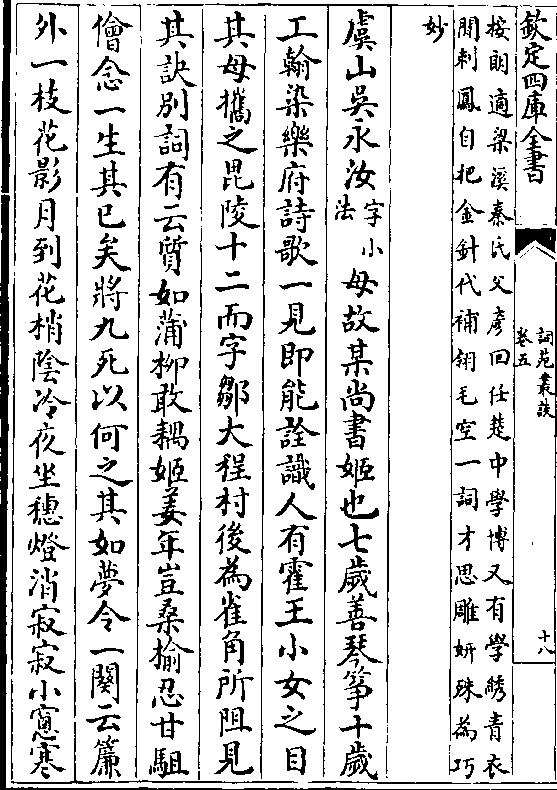 欽定四庫全書
詞苑叢談
卷五
十八
按朗適梁溪秦氏父彥回任楚中學博又有學繡青衣
閒刺鳳自把金針代補翎毛空一詞才思雕妍殊為巧
妙
虞山吳永汝字小法母故某尚書姬也七歲善琴箏十歲
工翰染樂府詩歌一見即能詮識人有霍王小女之目
其母攜之毘陵十二而字鄒大程村後為雀角所阻見
其訣別詞有云質如蒲柳敢耦姬姜年豈桑榆忍甘駔
儈念一生其已矣將九死以何之其如夢令一闋云簾
外一枝花影月到花梢陰冷夜坐穗燈消寂寂小窻寒